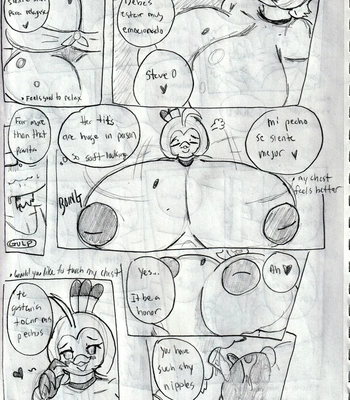 Para relajarse
• Feels good to relax
Debes
estar muy
emocionado
Steve O
For more
than that
GULP
Her tits
are huge in person
so soft-looking
BOING
mi pecho
se siente
mejor
• my chest
feels better
• would you like to touch my chest
te
gustaria
tocar mis
pechos
Yes...
It be a
honor
Ah
You have
such shy
nipples